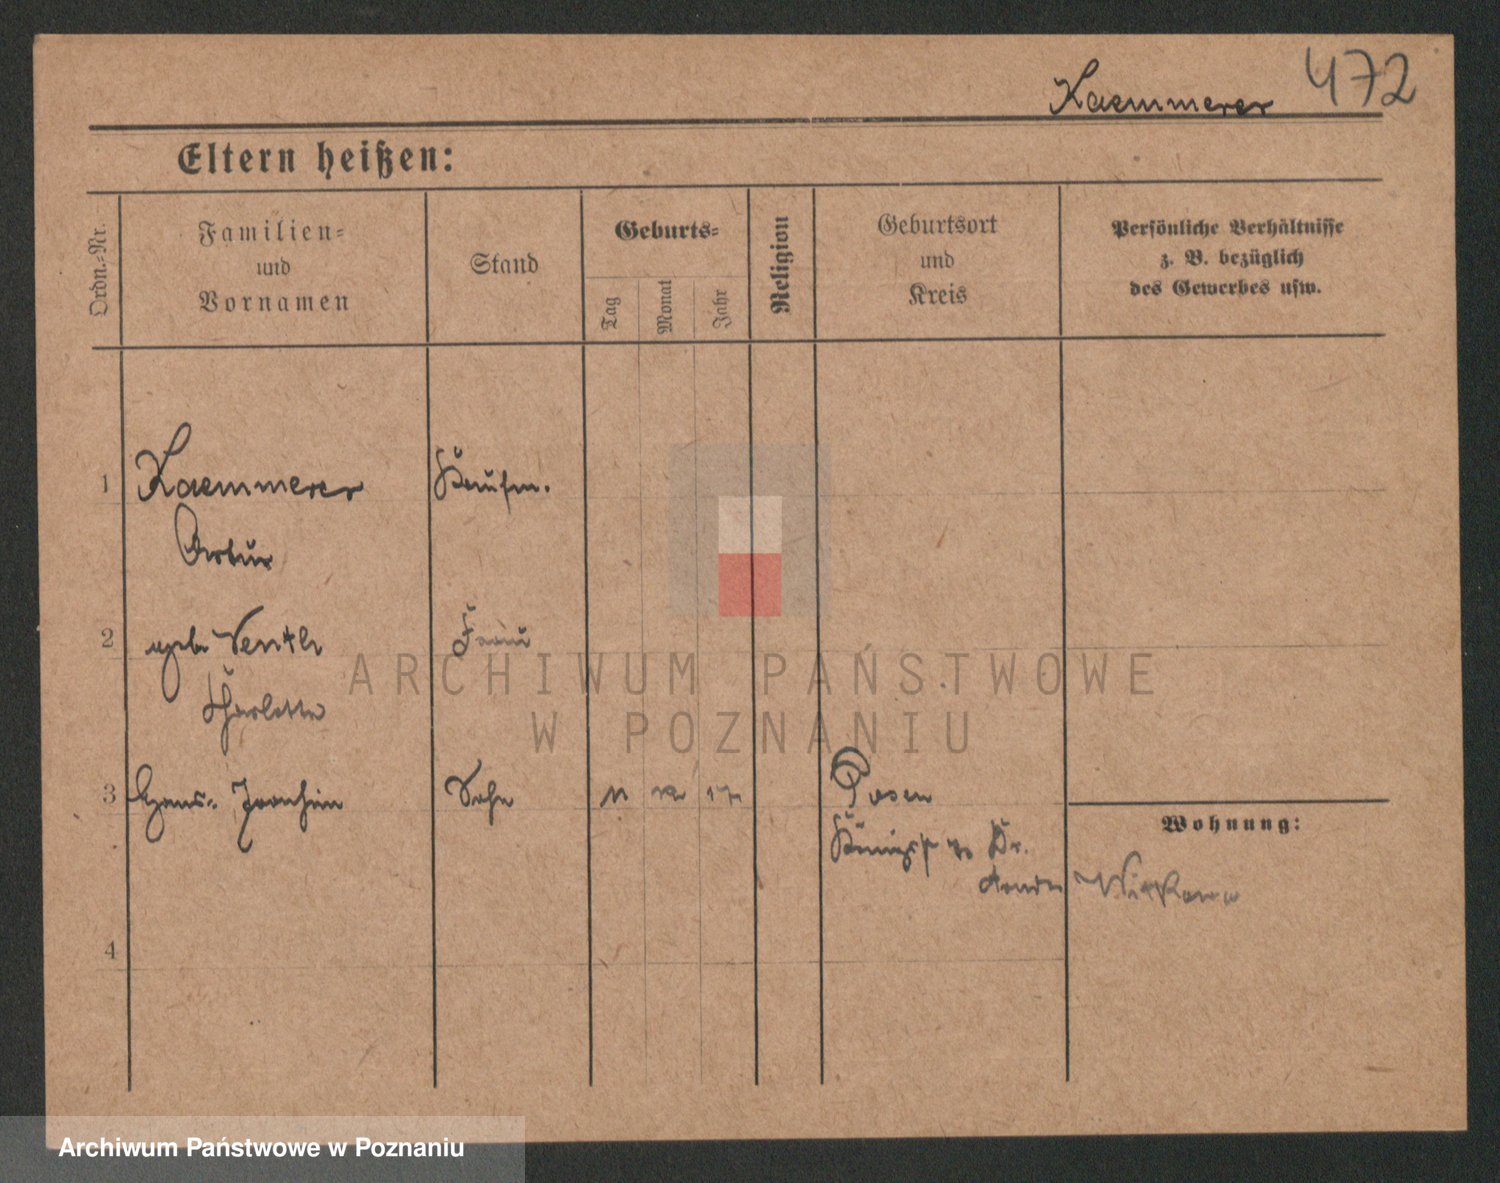 Kaemmerer 472
Eltern heißen:
Ordn.-Nr.
Familien-
und
Vornamen
Stand
Geburts-
Tag
Monat
Jahr
Religion
Geburtsort
und
Kreis
Persönliche Verhältnisse
z. B. bezüglich
des Gewerbes usw.
1 Kaemmerer Kaufm.
Artur
2 geb. Frau
Charlotte
3 Hans-Joachim Sohn 11 12 17 Posen
Wohnung:
Königstr Dr.
Witkowo
4
ARCHIWUM PAŃSTWOWE
W POZNANIU
Archiwum Państwowe w Poznaniu